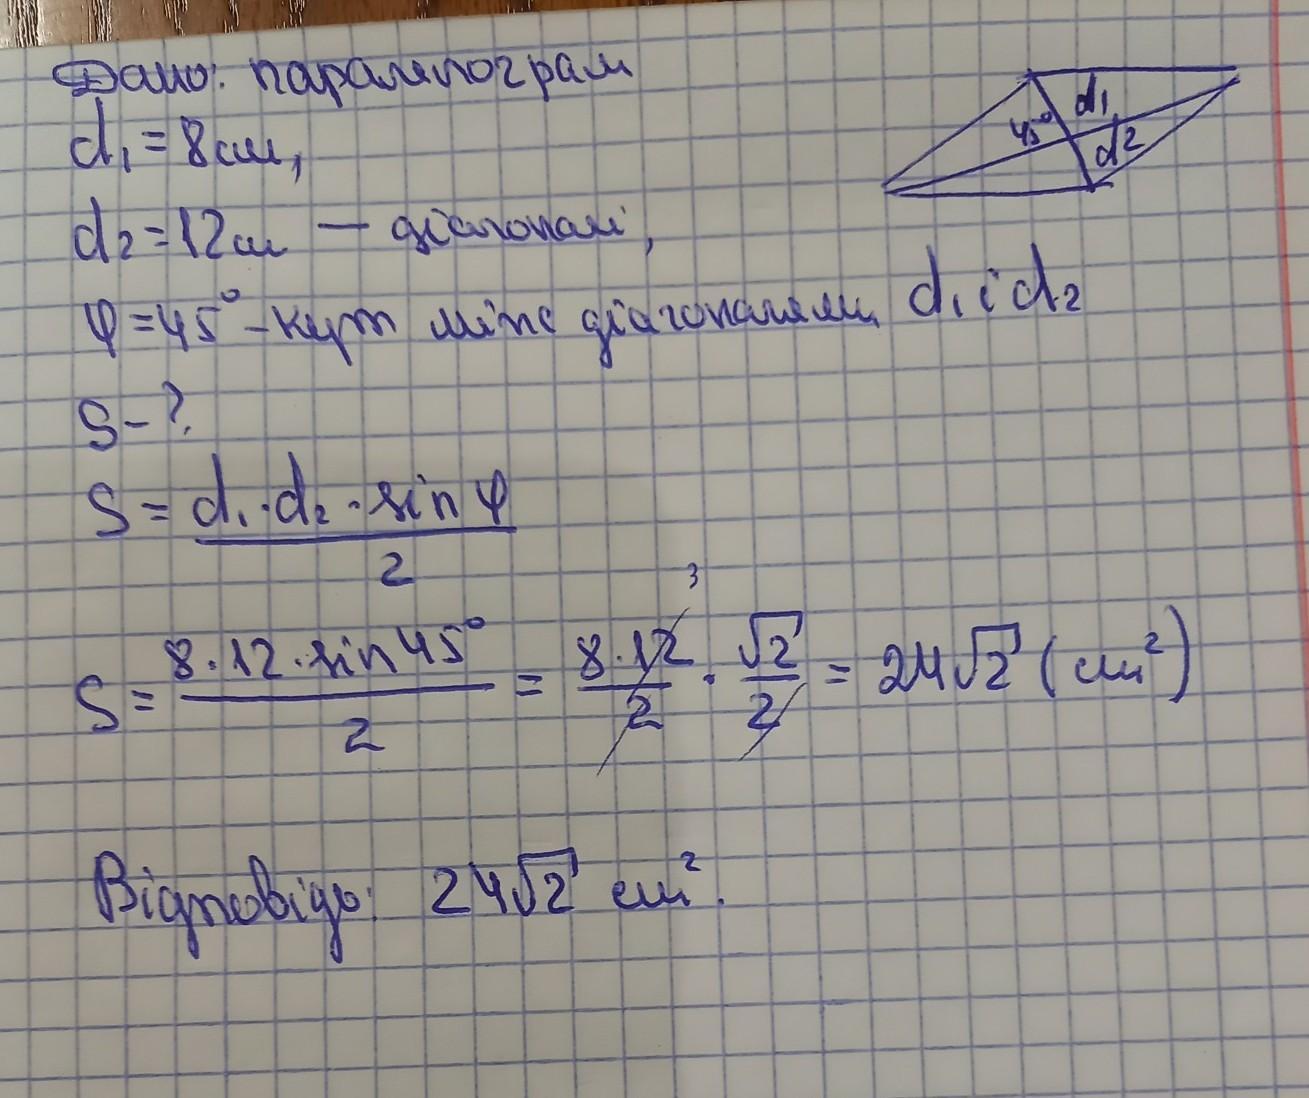 Дано: паралелограм
d₁ = 8 см,
d₂ = 12 см — діагоналі,
φ = 45° - кут між діагоналями d₁ і d₂
S - ?
S = (d₁ · d₂ · sin φ) / 2
S = (8 · 12 · sin 45°) / 2 = (8 · 12) / 2 · √2 / 2 = 24√2 (см²)
3
Відповідь: 24√2 см².
45°
d₁
d2